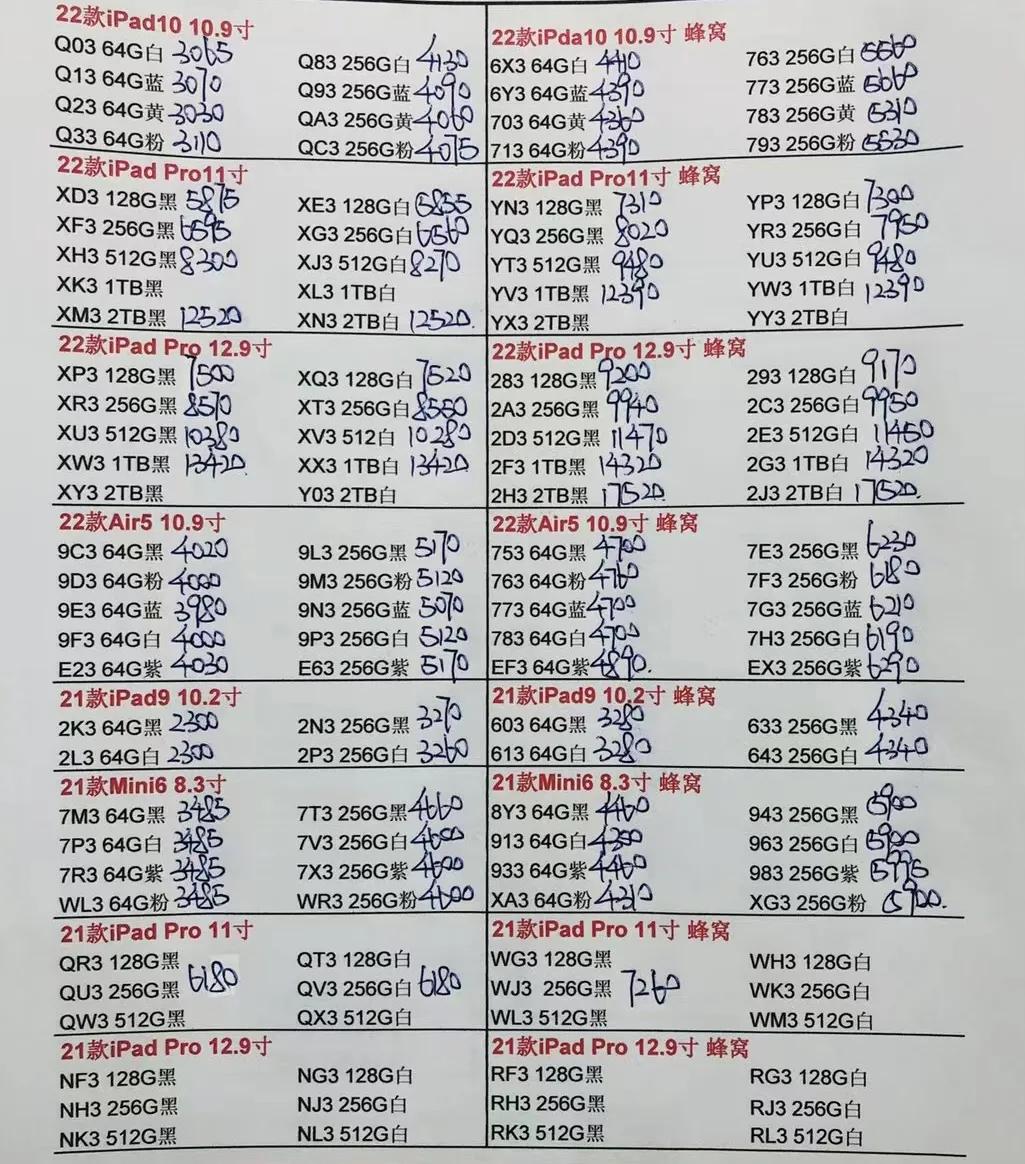 22款iPad10 10.9寸
Q03 64G白 3065
Q83 256G白 4130
Q13 64G蓝 3070
Q93 256G蓝 4090
Q23 64G黄 3030
QA3 256G黄 4060
Q33 64G粉 3110
QC3 256G粉 4075
22款iPda10 10.9寸 蜂窝
6X3 64G白 4410
763 256G白 5560
6Y3 64G蓝 4390
773 256G蓝 5660
703 64G黄 4360
783 256G黄 5310
713 64G粉 4390
793 256G粉 5530
22款iPad Pro11寸
XD3 128G黑 5875
XE3 128G白 5855
XF3 256G黑 6595
XG3 256G白 6560
XH3 512G黑 8300
XJ3 512G白 8270
XK3 1TB黑
XL3 1TB白
XM3 2TB黑 12520
XN3 2TB白 12520.
22款iPad Pro11寸 蜂窝
YN3 128G黑 7310
YP3 128G白 7300
YQ3 256G黑 8020
YR3 256G白 7950
YT3 512G黑 9480
YU3 512G白 9480
YV3 1TB黑 12390
YW3 1TB白 12390
YX3 2TB黑
YY3 2TB白
22款iPad Pro 12.9寸
XP3 128G黑 7500
XQ3 128G白 7520
XR3 256G黑 8570
XT3 256G白 8550
XU3 512G黑 10380
XV3 512白 10280
XW3 1TB黑 13420.
XX3 1TB白 13420
XY3 2TB黑
Y03 2TB白
22款iPad Pro 12.9寸 蜂窝
283 128G黑 9200
293 128G白 9170
2A3 256G黑 9940
2C3 256G白 9950
2D3 512G黑 11470
2E3 512G白 11450
2F3 1TB黑 14320
2G3 1TB白 14320
2H3 2TB黑 17520.
2J3 2TB白 17520.
22款Air5 10.9寸
9C3 64G黑 4020
9L3 256G黑 5170
9D3 64G粉 4000
9M3 256G粉 5120
9E3 64G蓝 3980
9N3 256G蓝 5070
9F3 64G白 4000
9P3 256G白 5120
E23 64G紫 4030
E63 256G紫 5170
22款Air5 10.9寸 蜂窝
753 64G黑 4700
7E3 256G黑 6230
763 64G粉 4760
7F3 256G粉 6180
773 64G蓝 4700
7G3 256G蓝 6210
783 64G白 4700
7H3 256G白 6190
EF3 64G紫 4890.
EX3 256G紫 6290
21款iPad9 10.2寸
2K3 64G黑 2300
2N3 256G黑 3270
2L3 64G白 2300
2P3 256G白 3260
21款iPad9 10.2寸 蜂窝
603 64G黑 3280
633 256G黑 4340
613 64G白 3280
643 256G白 4340
21款Mini6 8.3寸
7M3 64G黑 3485
7T3 256G黑 4660
7P3 64G白 3485
7V3 256G白 4600
7R3 64G紫 3485
7X3 256G紫 4600
WL3 64G粉 3485
WR3 256G粉 4600
21款Mini6 8.3寸 蜂窝
8Y3 64G黑 4460
943 256G黑 5900
913 64G白 4300
963 256G白 5900
933 64G紫 4460
983 256G紫 5775
XA3 64G粉 4310
XG3 256G粉 5900.
21款iPad Pro 11寸
QR3 128G黑
QT3 128G白
QU3 256G黑 6180
QV3 256G白 6180
QW3 512G黑
QX3 512G白
21款iPad Pro 11寸 蜂窝
WG3 128G黑
WH3 128G白
WJ3 256G黑 7260
WK3 256G白
WL3 512G黑
WM3 512G白
21款iPad Pro 12.9寸
NF3 128G黑
NG3 128G白
NH3 256G黑
NJ3 256G白
NK3 512G黑
NL3 512G白
21款iPad Pro 12.9寸 蜂窝
RF3 128G黑
RG3 128G白
RH3 256G黑
RJ3 256G白
RK3 512G黑
RL3 512G白